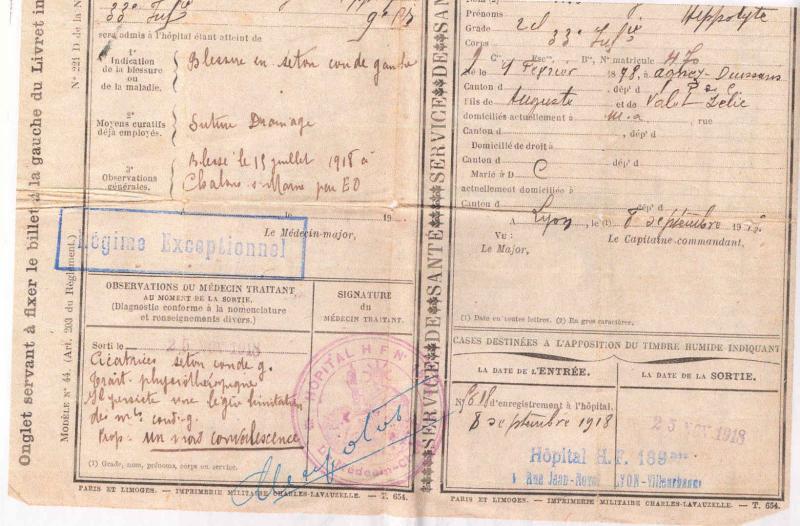 Onglet servant à fixer le billet à la gauche du Livret in
MODÈLE N° 44. (Art. 203 du Règlement.)
N° 221 D de la N
33e Infie
sera admis à l'hôpital étant atteint de
1°
Indication
de la blessure
ou
de la maladie.
Blessure en seton coude gauche
2°
Moyens curatifs
déjà employés.
Suture Drainage
3°
Observations
générales.
Blessé le 15 juillet 1918 à
Chalons s/Marne par EO
le 19
Le Médecin-major,
Régime Exceptionnel
OBSERVATIONS DU MÉDECIN TRAITANT
AU MOMENT DE LA SORTIE.
(Diagnostic conforme à la nomenclature
et renseignements divers.)
SIGNATURE
du
MÉDECIN TRAITANT.
Sorti le
25 NOV 1918
Cicatrices seton coude g.
Trait. physiothérapique
Il persiste une légère limitation
des mvts coude g.
Prop. un mois convalescence
HOPITAL H F N°
(1) Grade, nom, prénoms, corps ou service.
PARIS ET LIMOGES. — IMPRIMERIE MILITAIRE CHARLES-LAVAUZELLE. — T. 654.
SERVICE DE SANTÉ SERVICE DE SANTÉ
Prénoms Hippolyte
Grade 2cl
Corps 33e Infie
Cie, Esc., Bie, N° matricule
Né le 9 Février 1878, à
Canton d dép' d
Fils de Auguste et de
domiciliés actuellement à rue
Canton d dép' d
Domicilié de droit à
Canton d dép' d
Marié à D C
actuellement domiciliée à
Canton d dép' d
A Lyon, le (1) 8 septembre 19
VU :
Le Major,
Le Capitaine-commandant,
(1) Date en toutes lettres. (2) En gros caractères.
CASES DESTINÉES A L'APPOSITION DU TIMBRE HUMIDE INDIQUANT
LA DATE DE L'ENTRÉE.
LA DATE DE LA SORTIE.
N° 618 d'enregistrement à l'hôpital.
8 septembre 1918
25 NOV 1918
Hôpital H.F. 189 bis
1 Rue Jean-Novel LYON-Villeurbanne
PARIS ET LIMOGES. — IMPRIMERIE MILITAIRE CHARLES-LAVAUZELLE. — T. 654.